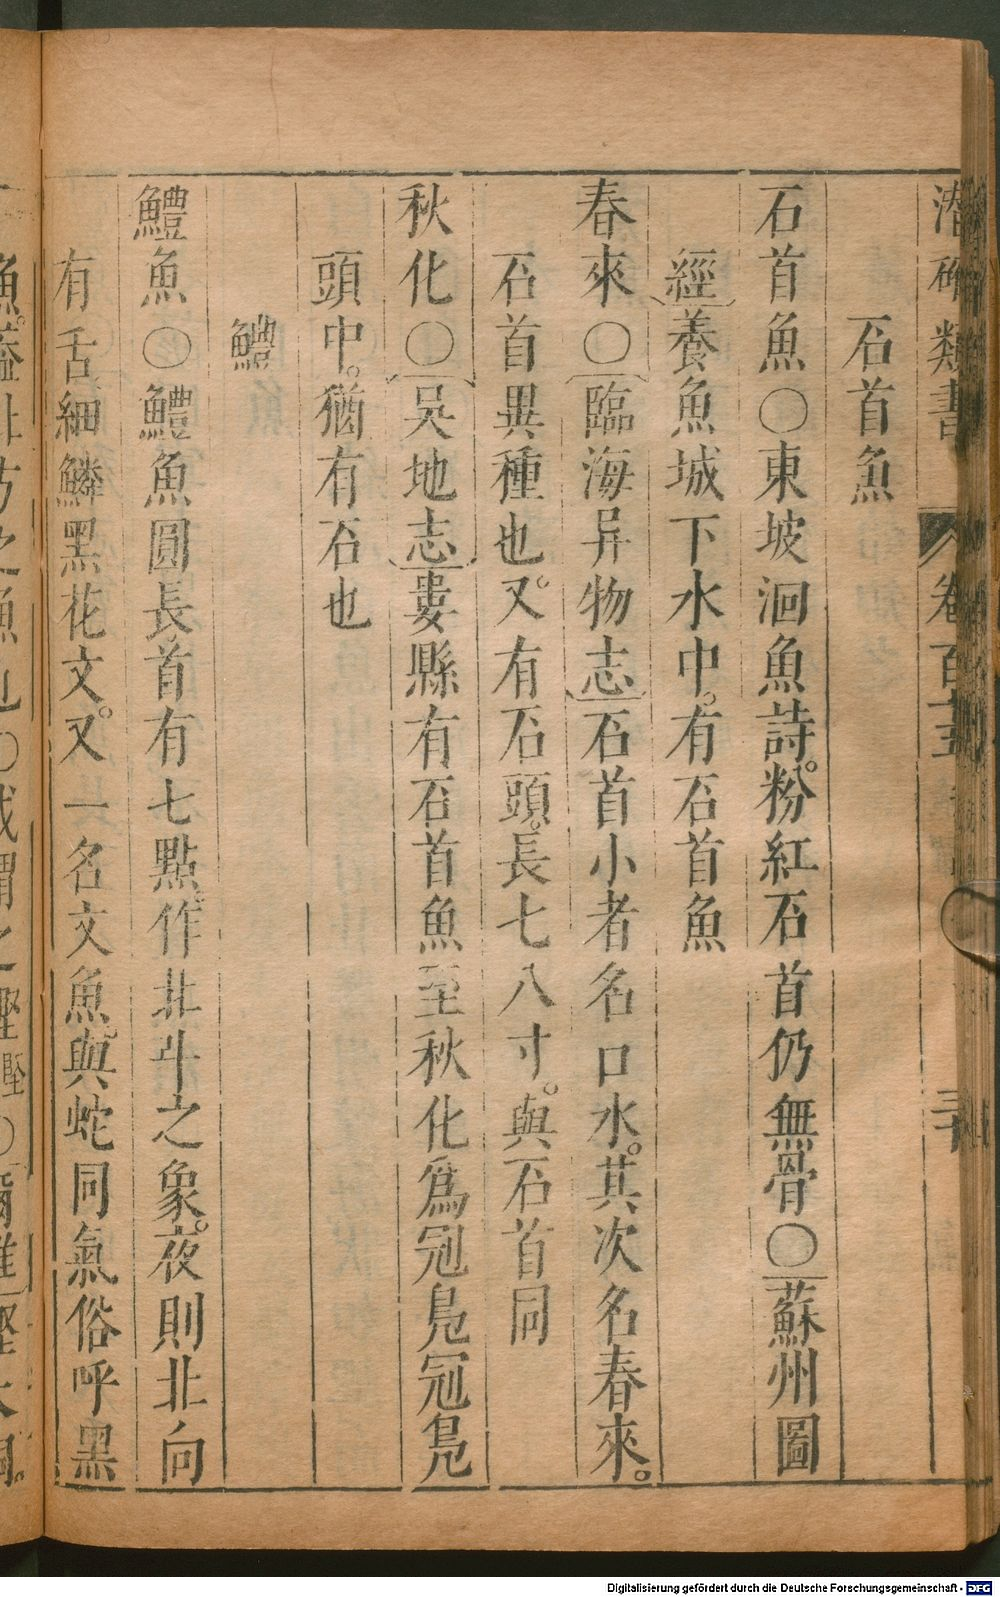 潛確類書 卷百十五
石首魚
石首魚〇東坡洄魚詩粉紅石首仍無骨〇蘇州圖
經養魚城下水中有石首魚
春來〇臨海异物志石首小者名口水其次名春來
石首異種也又有石頭長七八寸與石首同
秋化〇吳地志婁縣有石首魚至秋化爲冠鳧冠鳧
頭中猶有石也
鱧
鱧魚〇鱧魚圓長首有七點作北斗之象夜則北向
有舌細鱗黑花文又一名文魚與蛇同氣俗呼黑
Digitalisierung gefördert durch die Deutsche Forschungsgemeinschaft - DFG